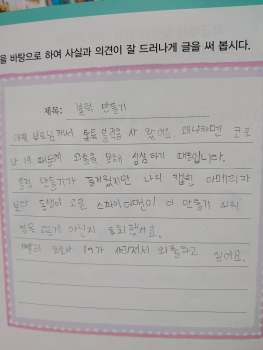 을 바탕으로 하여 사실과 의견이 잘 드러나게 글을 써 봅시다.
제목: 블럭 만들기
어제 부모님께서 블럭을 사 왔어요. 왜냐하면 코로
나 19 때문에 외출을 못해 심심하기 때문입니다.
블럭 만들기가 즐거웠지만 나의 캡틴 아메리카
보다 동생이 고른 스파이더맨이 더 만들기 쉬워
괜히 아닌지 후회했어요.
빨리 코로나 19가 사라져서 외출하고 싶어요.